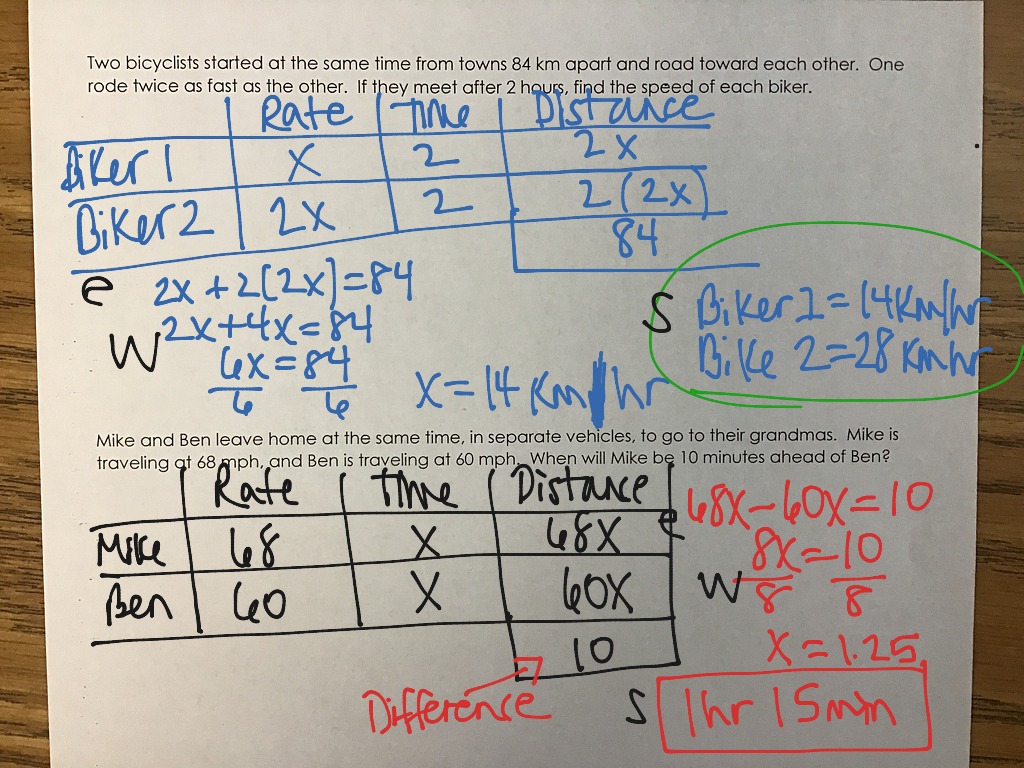 Two bicyclists started at the same time from towns 84 km apart and road toward each other. One
rode twice as fast as the other. If they meet after 2 hours, find the speed of each biker.
Rate Time Distance
Biker 1 X 2 2x
Biker 2 2X 2 2(2x)
84
e 2x+2(2x)=84
W 2x+4x=84
6x=84
6 6
X=14 Km/hr
S Biker 1=14Km/hr
Bike 2=28 Km/hr
Mike and Ben leave home at the same time, in separate vehicles, to go to their grandmas. Mike is
traveling at 68 mph, and Ben is traveling at 60 mph. When will Mike be 10 minutes ahead of Ben?
Rate Time Distance
Mike 68 X 68X
Ben 60 X 60X
10
Difference
e 68X-60X=10
W 8x=10
8 8
X=1.25
S 1hr 15min